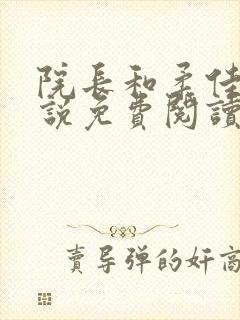 院長和柔佳
說免費閱讀
賣导弹的奸商